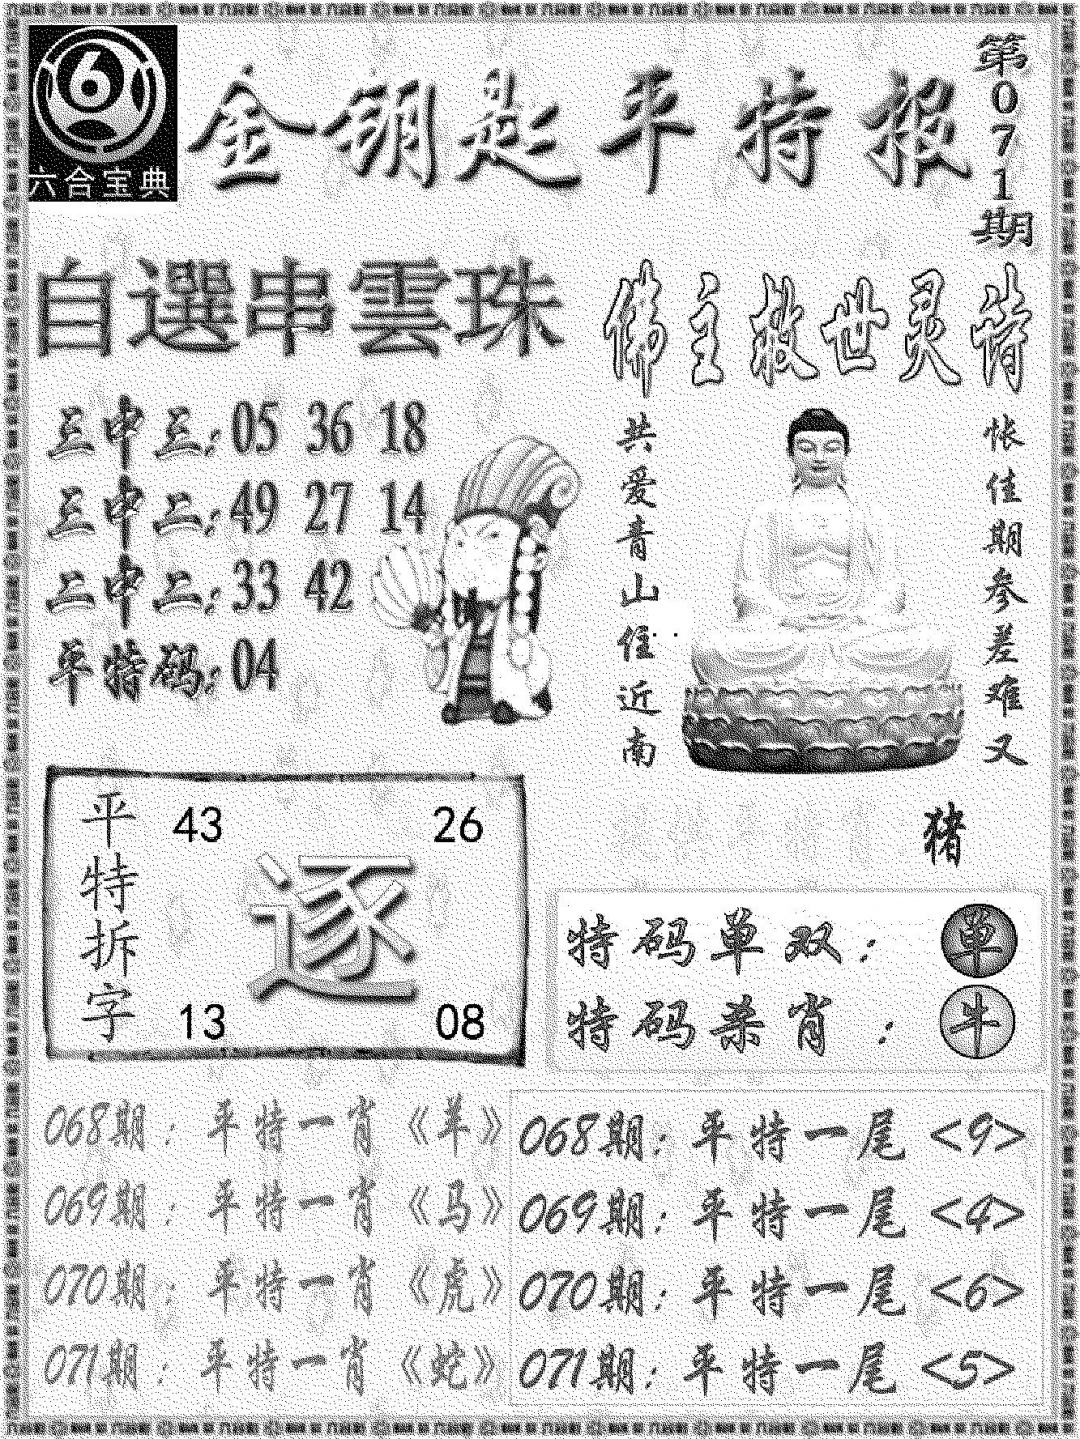 6
六合宝典
金钥匙平特报
第071期
自選串雲珠
三中三: 05 36 18
三中二: 49 27 14
二中二: 33 42
平特码: 04
佛主救世灵诗
怅佳期参差难又
共爱青山住近南
猪
平特拆字
43 26
逐
13 08
特码单双: 单
特码杀肖: 牛
068期: 平特一肖《羊》
069期: 平特一肖《马》
070期: 平特一肖《虎》
071期: 平特一肖《蛇》
068期: 平特一尾<9>
069期: 平特一尾<4>
070期: 平特一尾<6>
071期: 平特一尾<5>